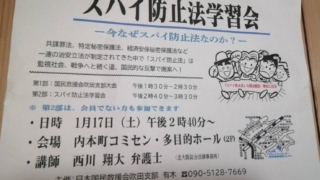 スパイ防止法学習会
―今なぜスパイ防止法なのか？―
共謀罪法、特定秘密保護法、経済安保秘密保護法など
一連の治安立法が制定されてきた中で「スパイ防止法」は
監視社会、戦争へと続く道、国民的な反撃で廃案へ！
第1部：国民救援会吹田支部大会 午後1時30分～2時30分
第2部：スパイ防止法学習会 午後2時40分～3時30分
※ 第2部は、会員でない方も参加できます
・日時 1月17日（土）午後2時40分～
・会場 内本町コミセン・多目的ホール（2F）
・講師 西川 翔大 弁護士
主催：日本国民救援会吹田支部 有木 ☎ 090-5128-7669